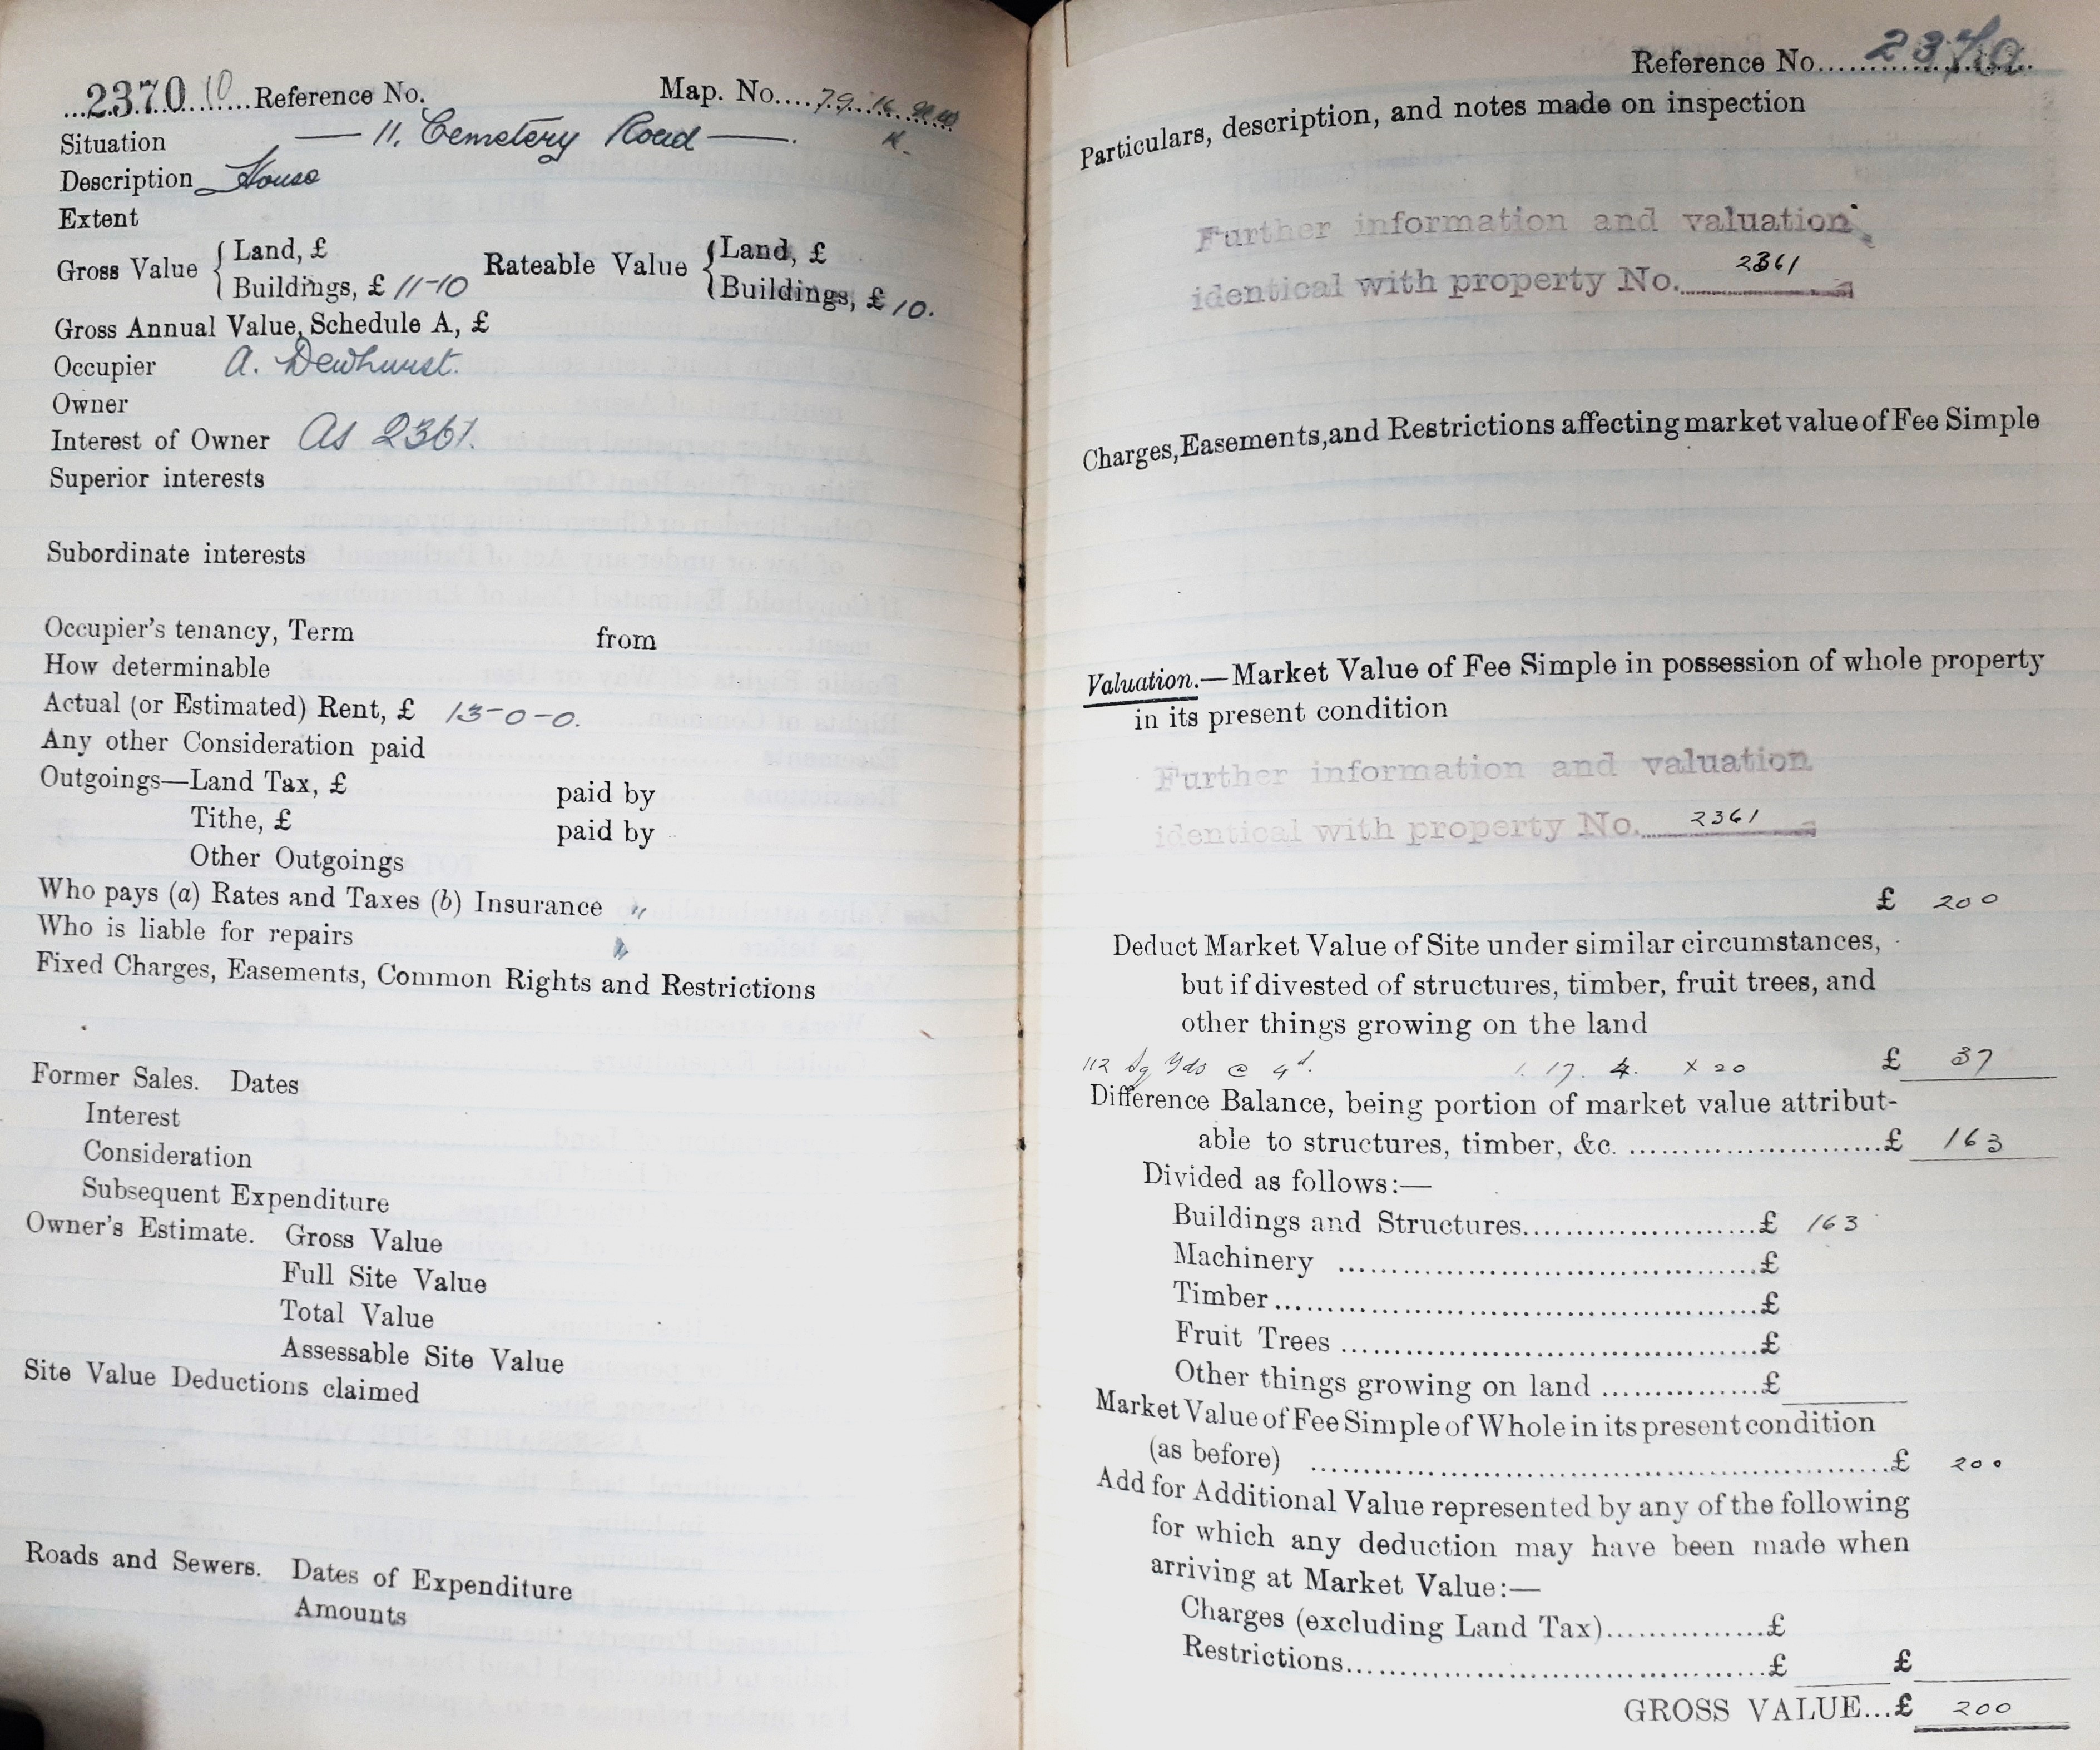 2370 10 Reference No. Map. No. 79.16.
Situation — 11, Cemetery Road —.
Description House
Extent
Gross Value { Land, £ Rateable Value { Land, £
Buildings, £ 11-10 Buildings, £ 10.
Gross Annual Value, Schedule A, £
Occupier A. Dewhurst.
Owner
Interest of Owner As 2361.
Superior interests
Subordinate interests
Occupier's tenancy, Term from
How determinable
Actual (or Estimated) Rent, £ 13-0-0.
Any other Consideration paid
Outgoings—Land Tax, £ paid by
Tithe, £ paid by
Other Outgoings
Who pays (a) Rates and Taxes (b) Insurance "
Who is liable for repairs
Fixed Charges, Easements, Common Rights and Restrictions
Former Sales. Dates
Interest
Consideration
Subsequent Expenditure
Owner's Estimate. Gross Value
Full Site Value
Total Value
Assessable Site Value
Site Value Deductions claimed
Roads and Sewers. Dates of Expenditure
Amounts
Reference No.
Particulars, description, and notes made on inspection
Further information and valuation
identical with property No. 2361
Charges, Easements, and Restrictions affecting market value of Fee Simple
Valuation.—Market Value of Fee Simple in possession of whole property
in its present condition
Further information and valuation
identical with property No. 2361
£ 200
Deduct Market Value of Site under similar circumstances,
but if divested of structures, timber, fruit trees, and
other things growing on the land
112 Sq Yds @ 4d. 1. 17. 4. x 20 £ 37
Difference Balance, being portion of market value attribut-
able to structures, timber, &c. ........................£ 163
Divided as follows:—
Buildings and Structures........................£ 163
Machinery ........................£
Timber........................£
Fruit Trees ........................£
Other things growing on land ................£
Market Value of Fee Simple of Whole in its present condition
(as before) ........................£ 200
Add for Additional Value represented by any of the following
for which any deduction may have been made when
arriving at Market Value:—
Charges (excluding Land Tax)................£
Restrictions........................£ £
GROSS VALUE...£ 200